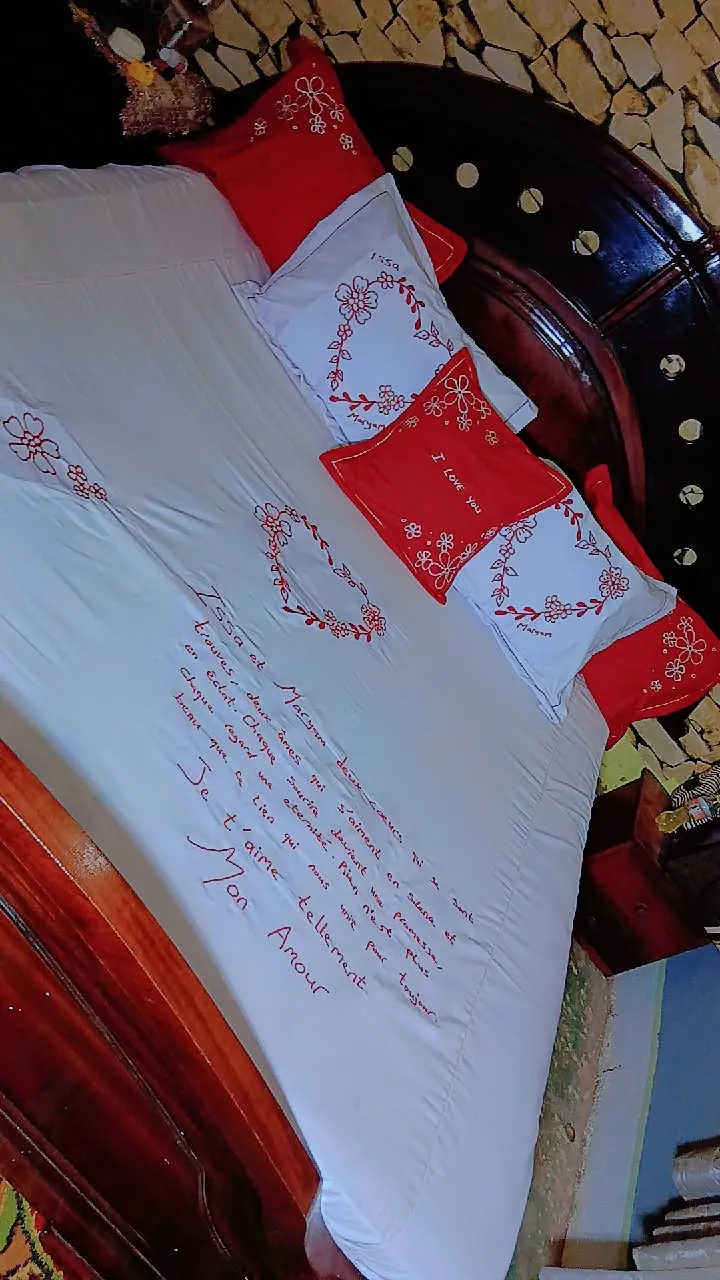 Issa
Maryam
I LOVE YOU
Maryam
Issa et Maryam deux coeurs qui se sont
trouvés, deux âmes qui s'aiment en silence et
en éclat. Chaque sourire devient une promesse,
chaque regard une eternité. Rien n'est plus
beau que ce lien qui nous unit pour toujour.
Je t'aime tellement
Mon Amour